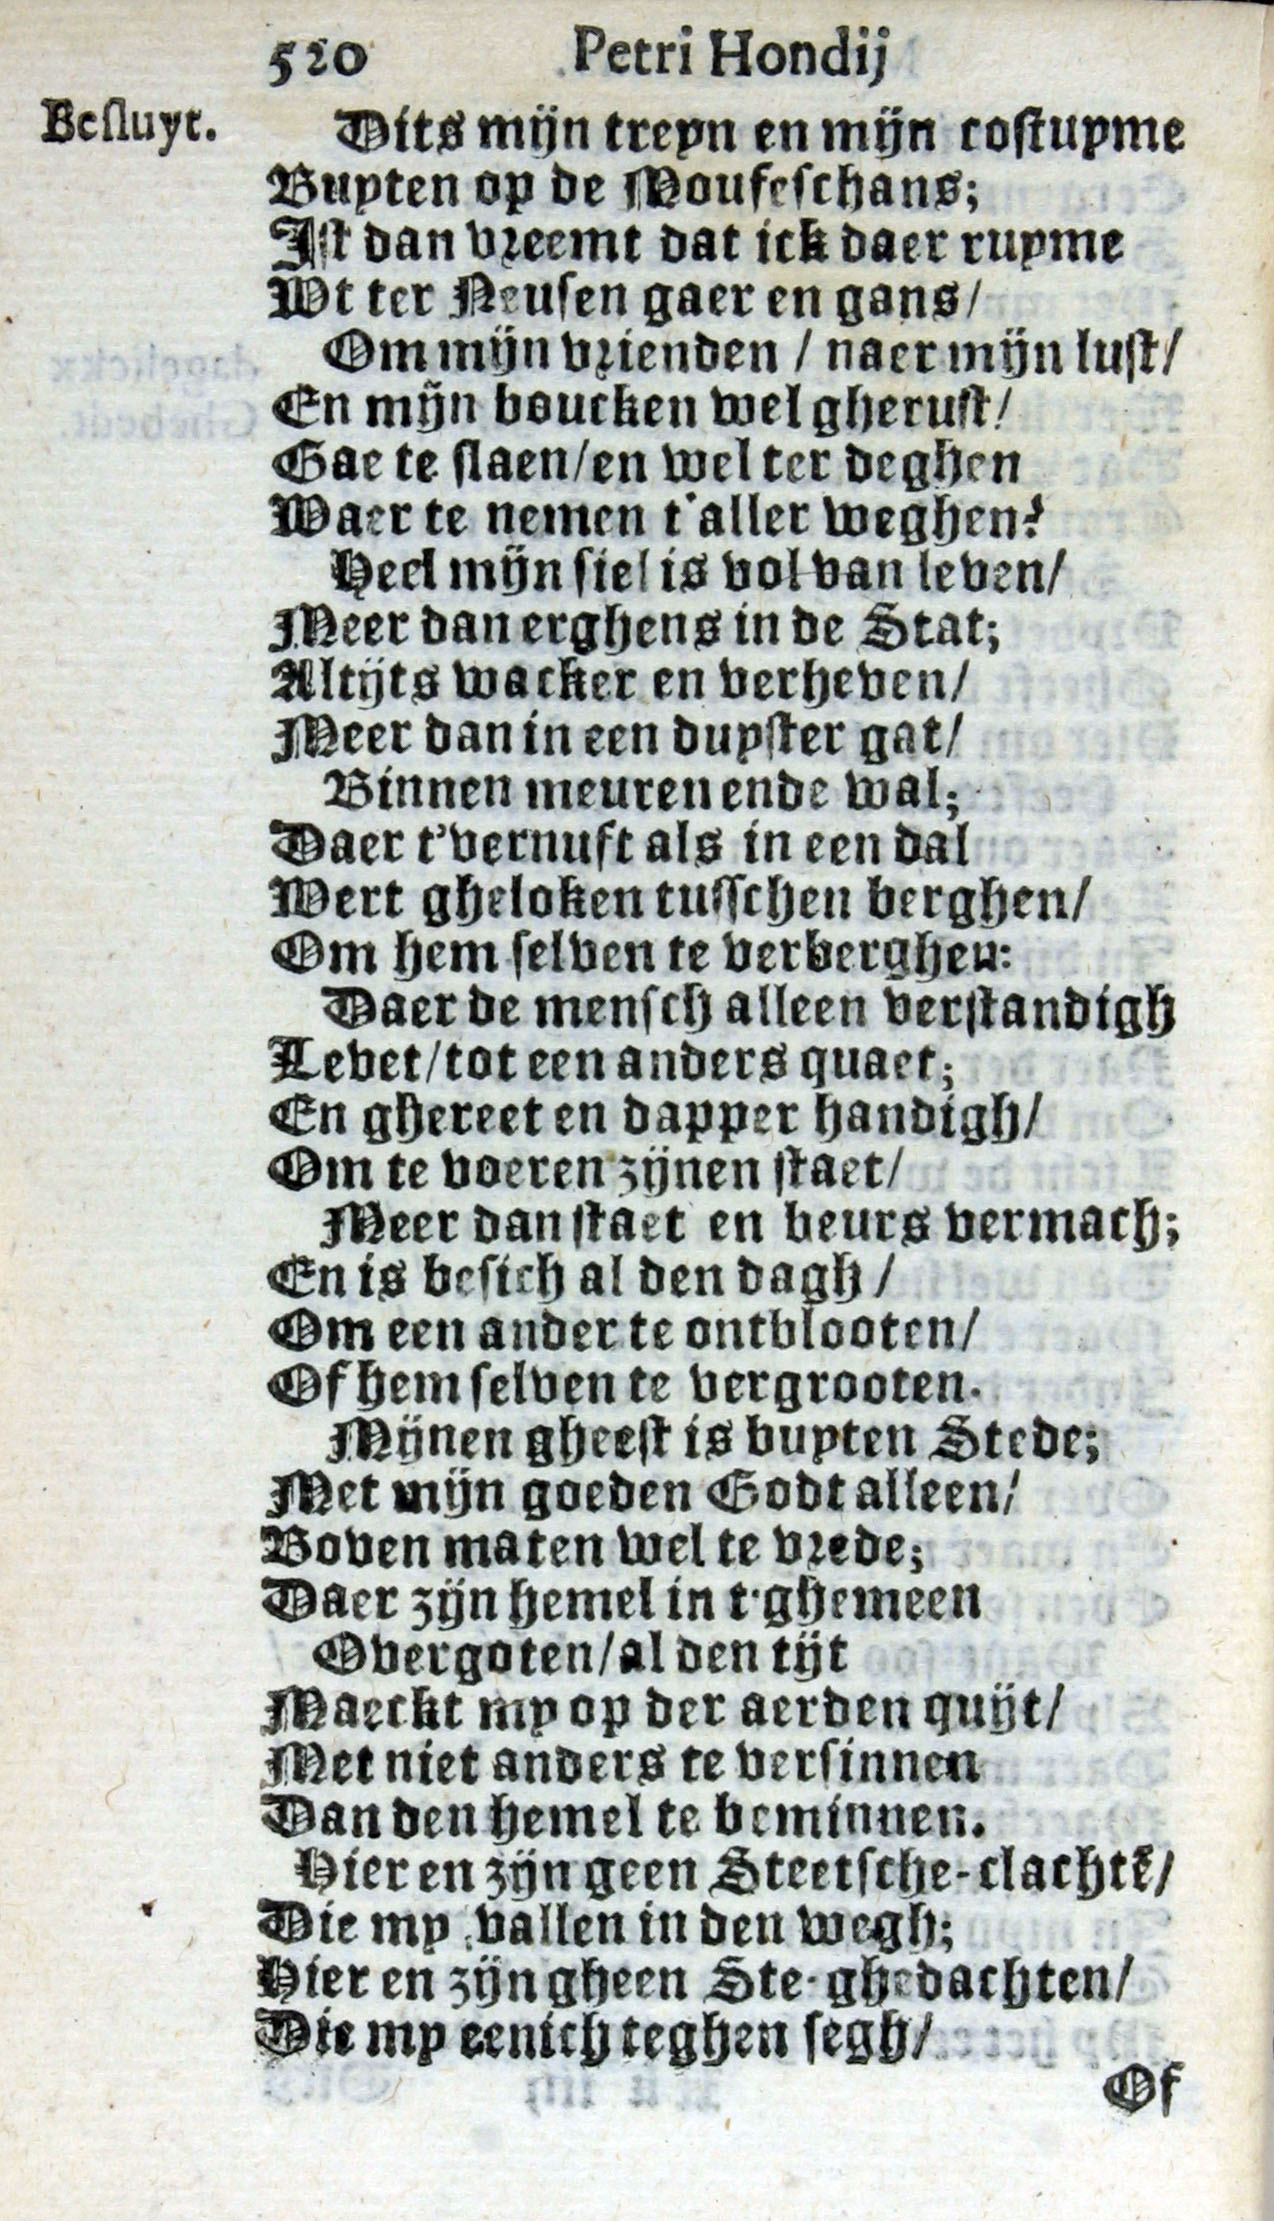 520 Petri Hondij
Besluyt.
Dits mijn treyn en mijn costuyme
Buyten op de Moufeschans;
Ist dan vreemt dat ick daer ruyme
Wt ter Neusen gaer en gans/
Om mijn vrienden / naer mijn lust/
En mijn boucken wel gherust/
Gae te slaen/ en wel ter deghen
Waer te nemen t'aller weghen?
Heel mijn siel is vol van leven/
Meer dan erghens in de Stat;
Altijts wacker en verheven/
Meer dan in een duyster gat/
Binnen meuren ende wal;
Daer t'vernuft als in een dal
Wert gheloken tusschen berghen/
Om hem selven te verberghen:
Daer de mensch alleen verstandigh
Levet/ tot een anders quaet;
En ghereet en dapper handigh/
Om te voeren zijnen staet/
Meer dan staet en beurs vermach;
En is besich al den dagh /
Om een ander te ontblooten/
Of hem selven te vergrooten.
Mijnen gheest is buyten Stede;
Met mijn goeden Godt alleen/
Boven maten wel te vrede;
Daer zijn hemel in t'ghemeen
Overgoten/ al den tijt
Maeckt my op der aerden quijt/
Met niet anders te versinnen
Dan den hemel te beminnen.
Hier en zijn geen Steetsche-clachtẽ/
Die my vallen in den wegh;
Hier en zijn gheen Ste-ghedachten/
Die my eenich teghen segh/
Of